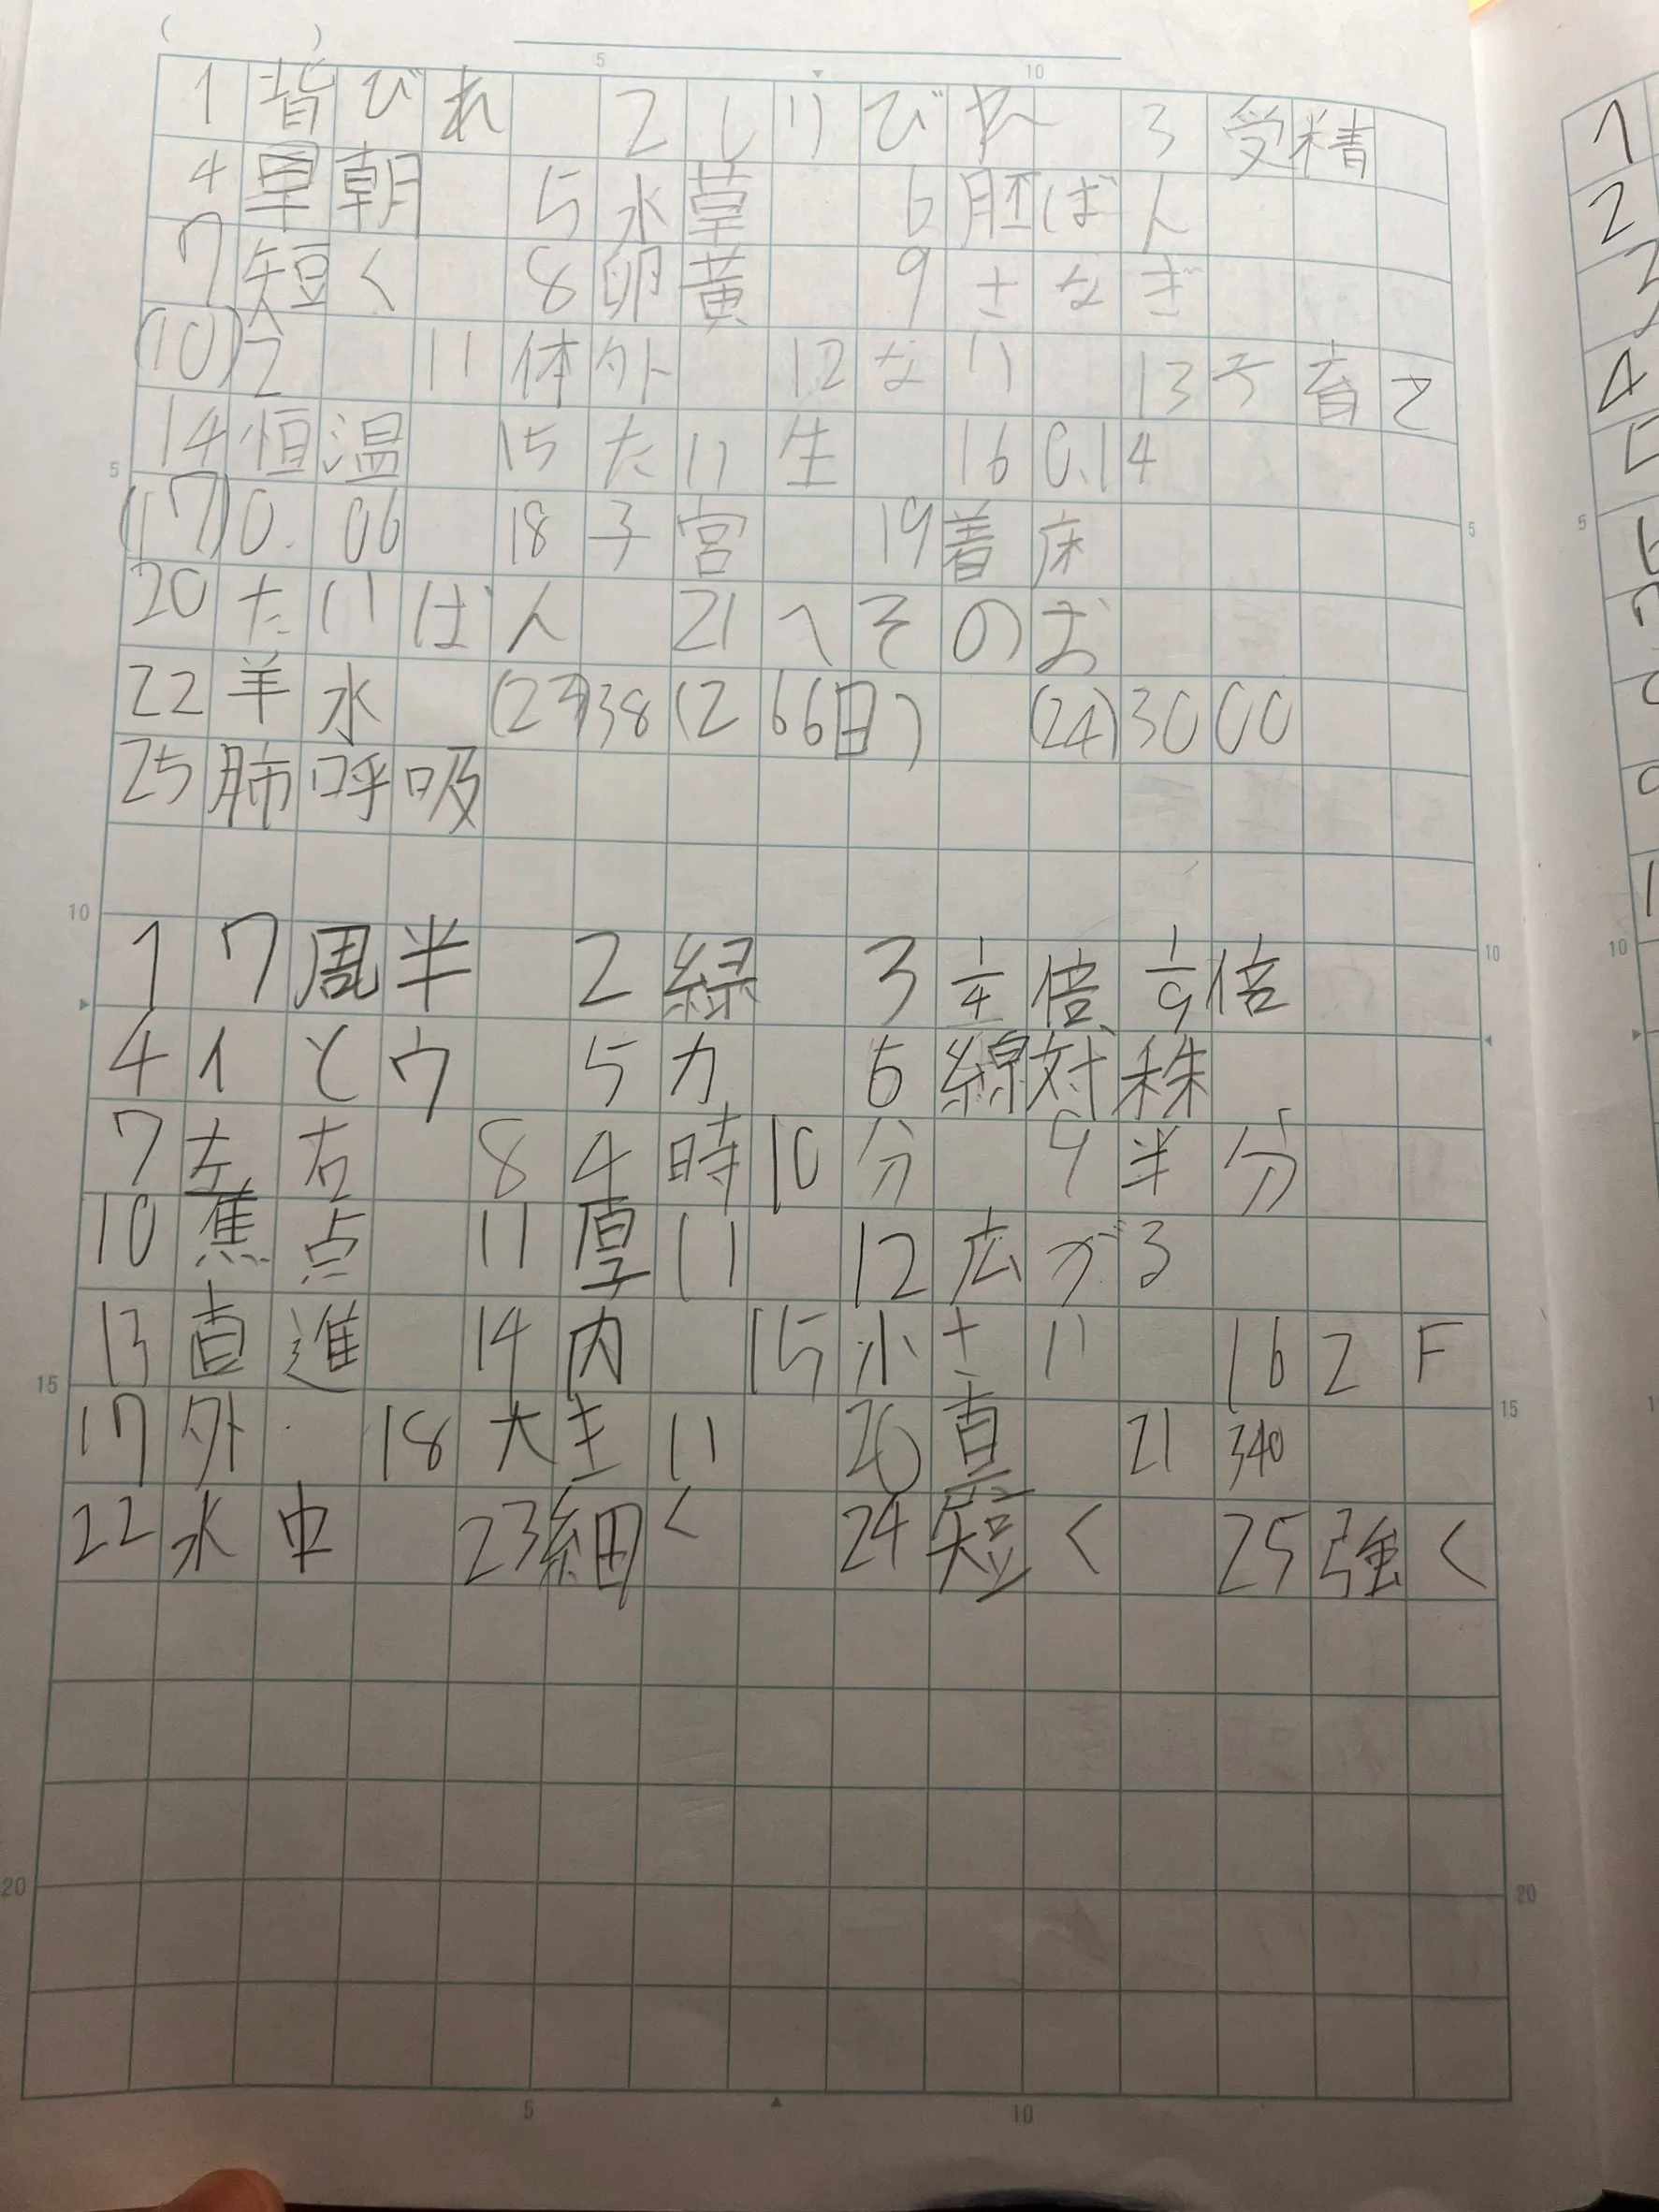 ( )
5 10
1 背びれ 2 しりびれ 3 受精
4 早朝 5 水草 6 胚ばん
7 短く 8 卵黄 9 さなぎ
(10) 2 11 体外 12 ない 13 子育て
5 14 恒温 15 たい生 16 0.14
(17) 0.06 18 子宮 19 着床 5
20 たいばん 21 へそのお
22 羊水 (23) 38(266日) (24) 3000
25 肺呼吸
10 1 7周半 2 緑 3 1/4倍、1/9倍 10
4 イとウ 5 カ 6 線対株
7 左右 8 4時10分 9 半分
10 焦点 11 厚い 12 広がる
15 13 直進 14 内 15 小さい 16 2F
17 外 18 大きい 20 真 21 340 15
22 水中 23 細く 24 短く 25 強く
20 20
5 10
1
2
3
4
5
5 6
7
9
10